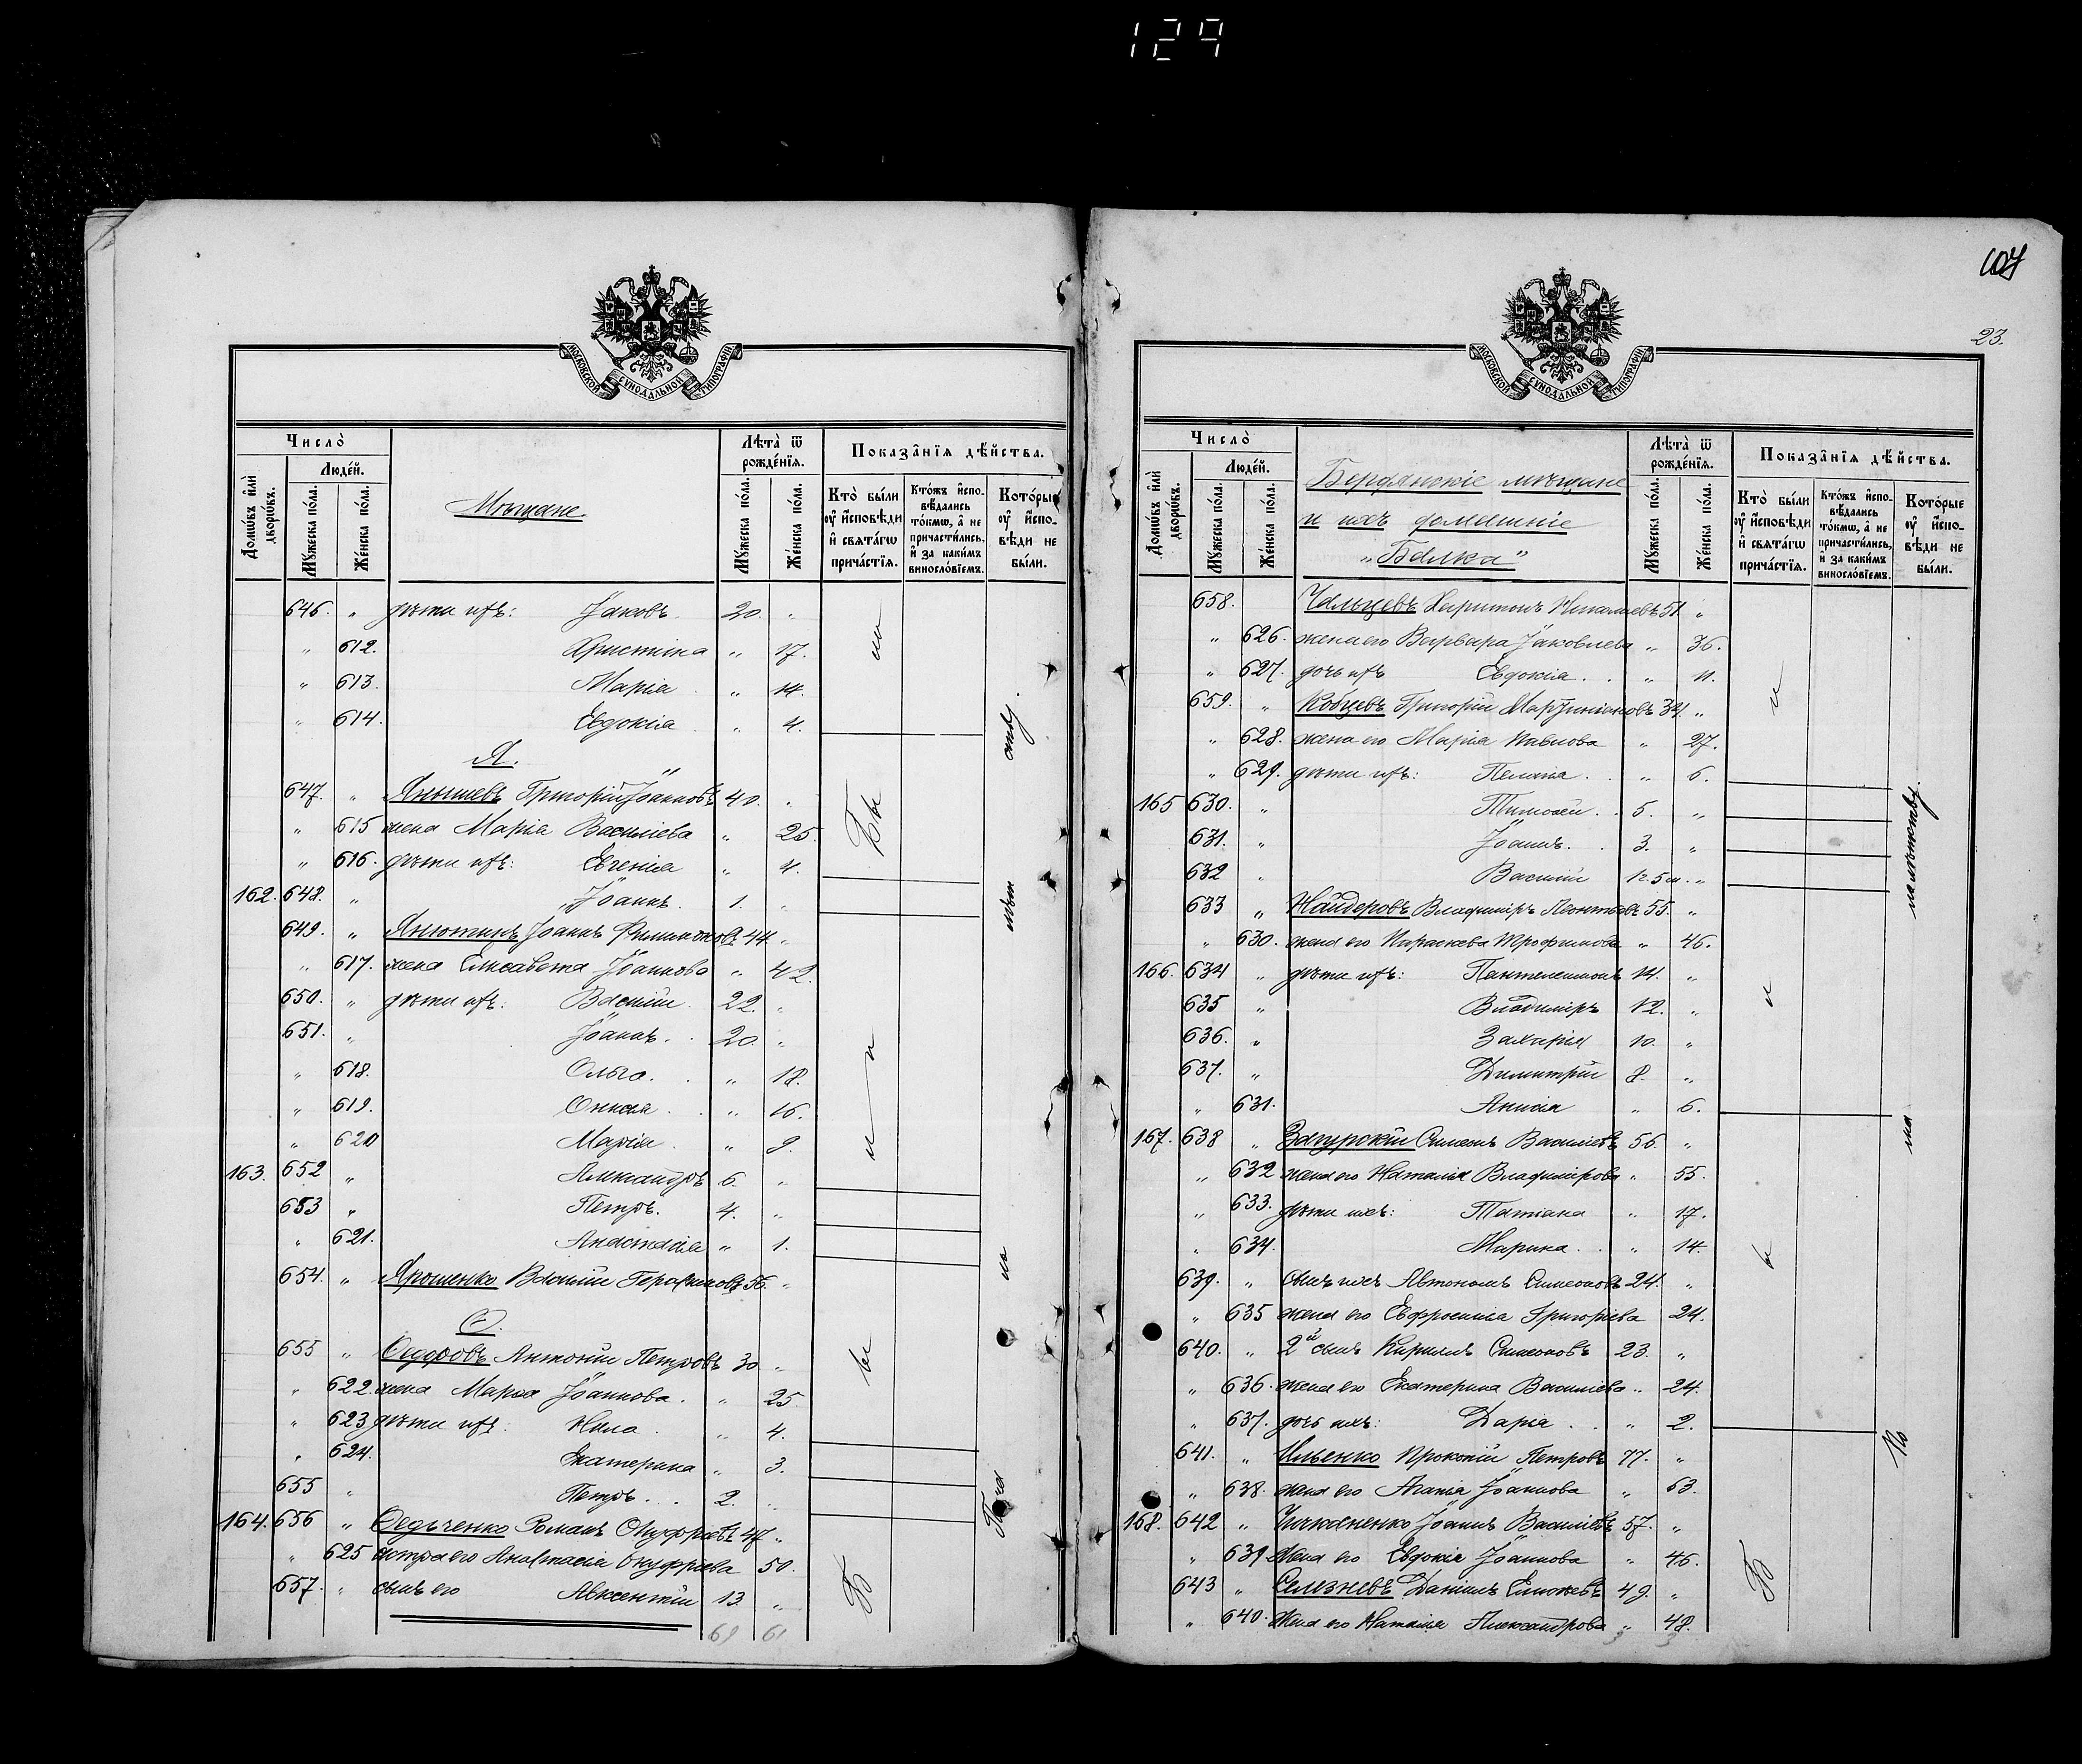 129
МОСКОВСКОЙ СУНОДАЛЬНОЙ ТИПОГРАФІИ
Число̀
Людéй.
Домѡ́въ и҆лѝ дворѡ́въ.
Мꙋ́жеска по́ла.
Же́нска по́ла.
Мѣщане
Лѣта̀ ѿ рожде́нїѧ.
Мꙋ́жеска по́ла.
Же́нска по́ла.
Показа̂нїѧ дѣ́йства.
Кто̀ бы́ли ᲂу҆ и҆сповѣ́ди и҆ свѧта́гѡ прича́стїѧ.
Кто́жъ и҆спо-вѣ́дались то́кмѡ, а҆ не причасти́лись, и҆ за каки́мъ винослѡ́вїемъ.
Кото́рые ᲂу҆ и҆спо-вѣ́ди не бы́ли.
646. „ дѣти ихъ: Іаковъ 20. „
„ 612. Христина „ 17.
„ 613. Марія „ 14.
„ 614. Евдокія „ 4.
Я.
647. „ Янышевъ Григорій Іоанновъ 40. „
„ 615 жена Марія Василіева „ 25.
„ 616. дѣти ихъ: Евгенія „ 4.
162. 648. „ Іоаннъ. 1. „
649. „ Янютинъ Іоаннъ Филимоновъ 44. „
„ 617. жена Елисавета Іоаннова „ 42.
650. „ дѣти ихъ: Василій 22. „
651. „ Іоаннъ. 20. „
„ 618. Ольга. „ 18.
„ 619. „ 16.
„ 620 Марія „ 9.
163. 652 „ Александръ 6. „
653 „ Петръ. 4. „
„ 621. Анастасія „ 1.
654. „ Ярошенко Василій 56. „
Ѳ.
655 „ Антоній Петровъ 30 „
„ 622. жена Марѳа Іоаннова. „ 25
„ 623 дѣти ихъ: „ 4.
„ 624. Екатерина „ 3.
655 „ Петръ. 2. „
164. 656 „ Ѳедьченко Романъ Онуфріевъ 47 „
„ 625 сестра его Анастасія Онуфріева 50.
657. „ сынъ его Авксентій 13 „
69 61
Бы ли
Б ы
107
23.
МОСКОВСКОЙ СУНОДАЛЬНОЙ ТИПОГРАФІИ
Число̀
Людéй.
Домѡ́въ и҆лѝ дворѡ́въ.
Мꙋ́жеска по́ла.
Же́нска по́ла.
Бердянскіе мѣщане
и ихъ домашніе
„Балка“
Лѣта̀ ѿ рожде́нїѧ.
Мꙋ́жеска по́ла.
Же́нска по́ла.
Показа̂нїѧ дѣ́йства.
Кто̀ бы́ли ᲂу҆ и҆сповѣ́ди и҆ свѧта́гѡ прича́стїѧ.
Кто́жъ и҆спо-вѣ́дались то́кмѡ, а҆ не причасти́лись, и҆ за каки́мъ винослѡ́вїемъ.
Кото́рые ᲂу҆ и҆спо-вѣ́ди не бы́ли.
658. Чальцевъ Харитонъ Николаевъ 51 „
„ 626. жена его Варвара Іаковлева „ 36.
„ 627. дочь ихъ Евдокія. „ 11.
659. „ Кобцевъ Григорій Мартиніановъ 34. „
„ 628. жена его Марія Павлова „ 27.
„ 629. дѣти ихъ: Пелагія. „ 6.
165 630. „ Тимоѳей. 5. „
631. „ Іоаннъ. 3. „
632 „ Василій 1г. 5м. „
633 „ Найдеровъ Владиміръ Леонтьевъ 55. „
„ 630. жена его Параскева Трофимова „ 46.
166. 634 „ дѣти ихъ: Пантелеимонъ 14. „
635 „ Владиміръ 12. „
636. „ Захарія 10. „
637. „ Димитрій 8. „
„ 631. Анисія „ 6.
167. 638 „ Загурскій Симеонъ Василіевъ 56. „
„ 632 жена его Наталія Владимірова „ 55.
„ 633. дѣти ихъ: Татіана „ 17.
„ 634. Марина. „ 14.
639. „ сынъ ихъ Автономъ Симеоновъ 24. „
„ 635 жена его Евфросинія Григоріева 24.
640. „ 2й сынъ Кириллъ Симеоновъ 23. „
„ 636. жена его Екатерина Василіева „ 24.
„ 637. дочь ихъ: Дарія „ 2.
641. „ Ильенко Прокопій Петровъ 77. „
„ 638. жена его Агапія Іоаннова „ 63.
168. 642 „ Іоаннъ Василіевъ 57. „
„ 639 жена его Евдокія Іоаннова „ 46.
643 „ Селезневъ Даніилъ 49. „
„ 640. жена его Наталія Александрова „ 48.
По малолѣтству